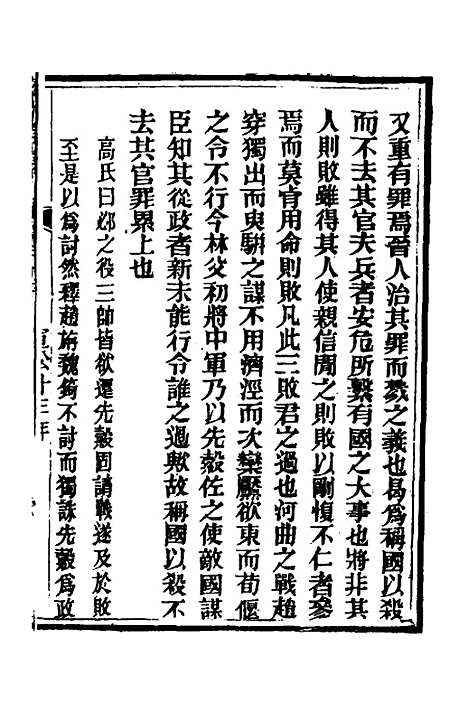 又重有罪焉晉人治其罪而戮之義也曷為稱國以殺
而不去其官夫兵者安危所繫有國之大事也將非其
人則敗雖得其人使親信間之則敗以剛愎不仁者參
焉而莫肯用命則敗凡此三敗君之過也河曲之戰趙
穿獨出而臾駢之謀不用濟涇而次欒黶欲東而荀偃
之令不行今林父初將中軍乃以先縠佐之使敵國謀
臣知其從政者新未能行令誰之過歟故稱國以殺不
去其官罪累上也
高氏曰邲之役三帥皆欲還先縠固請戰遂及於敗
至是以為討然釋趙旃魏錡不討而獨誅先縠為政
宣公十三年